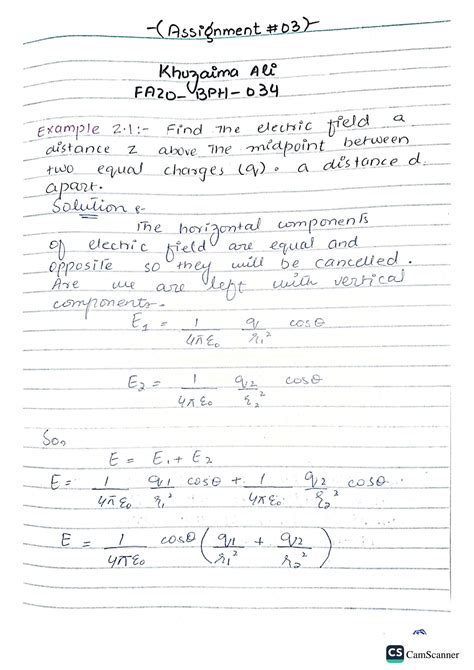 (Assignment #03)
Khuzaima Ali
FA20-BPH-034
Example 2.1:- Find the electric field a
distance z above the midpoint between
two equal charges (q). a distance d
apart.
Solution :-
The horizontal components
of electric field are equal and
opposite so they will be cancelled.
Are we are left with vertical
components.
E₁ = 1/4πε₀ q/r₁² cosθ
E₂ = 1/4πε₀ q₂/r₂² cosθ
So,
E = E₁ + E₂
E = 1/4πε₀ q₁/r₁² cosθ + 1/4πε₀ q₂/r₂² cosθ
E = 1/4πε₀ cosθ (q₁/r₁² + q₂/r₂²)
CS CamScanner